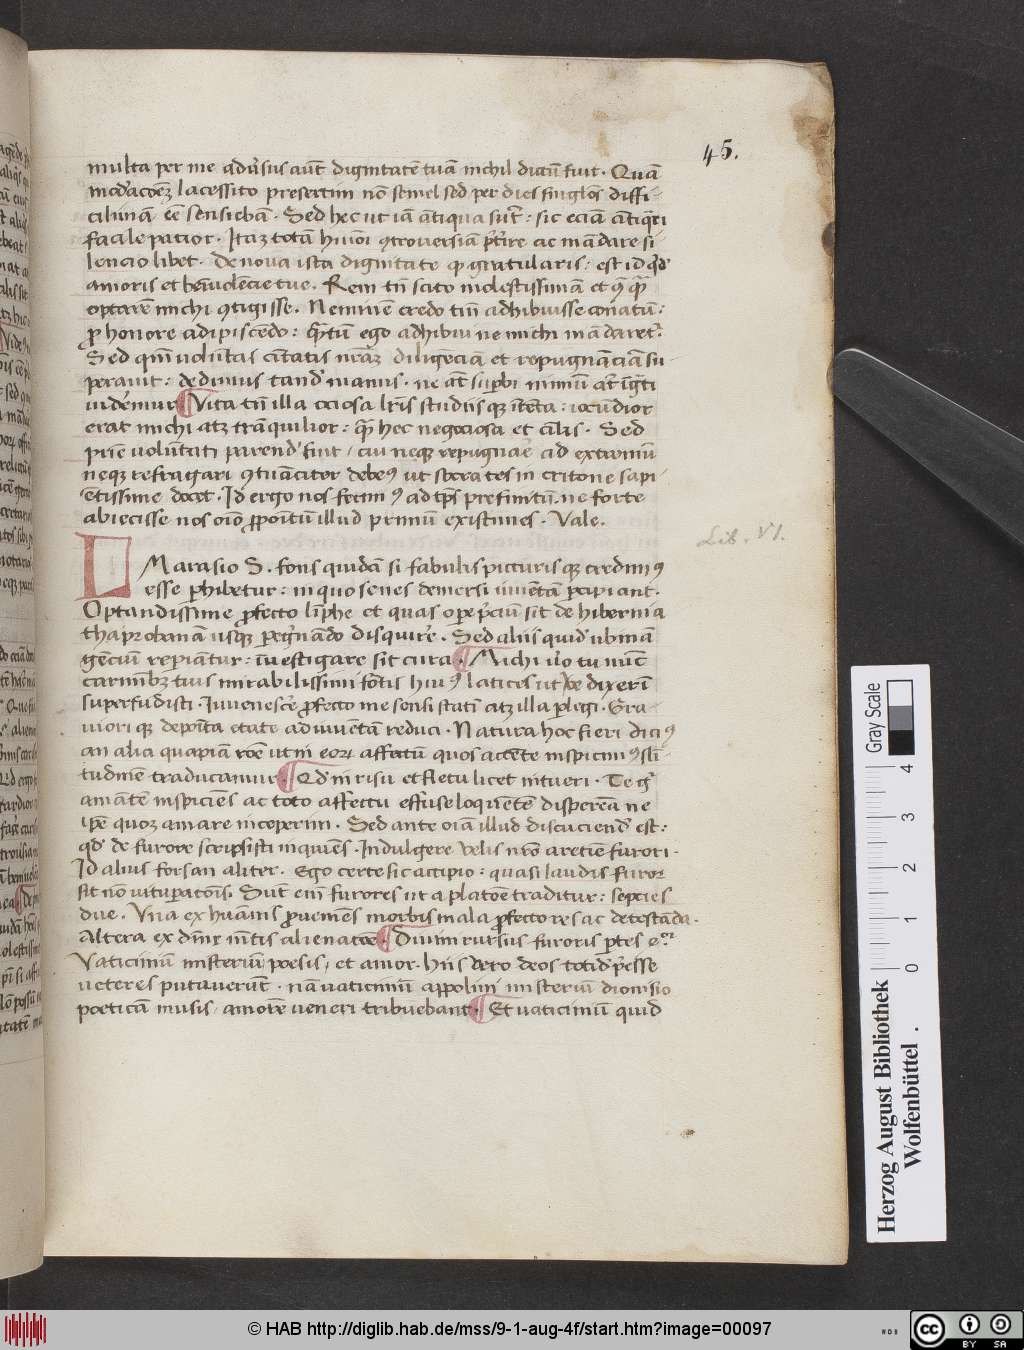 45.
multa per me adu'sus aūt dignitatē tuā nichil dictū fuit. Quā
lacessito presertim nō semel sed per dies singlos diffi-
cilimā eē sensiebā. Sed hec ut iā ātiqua sūt: sic eciā
facile patior. Itaqz totā huiꝰ ꝯtrouersiā ac mādare si
lencio libet. De noua ista dignitate qͥ gratularis: est id qd'
amoris et beniuolēcie tue. Rem tn̄ scito molestissimā et
optarem michi ꝯtigisse. Neminē credo tm̄ adhibuisse conatū:
ꝓ honore adipiscēdo: qͣtū ego adhibui ne michi mādaret'.
Sed qm̄ volūtas ciuitatis nrāqz diligēciā et repugnāciā su-
perauit: dedimus tand' manus. ne aūt supbi nimiū aut īgti
uidemur ¶ Vita tn̄ illa ociosa lris studiisqz ītēta: iocūdior
erat michi atqz trāquilior: qͣ hec negociosa et ciuilis. Sed
prie uolūtati parend' fuit, cui neqz repugnare ad extremū
neqz refragari debeꝰ ut socrates in critone sapi-
ētissime docet. Id ergo nos fecimꝰ ad tps prefinitū. ne forte
abiecisse nos oīo ꝓpoitū illud primū existimes. Vale.
Lib. VI.
L Marasio S. fons quidā si fabulis picturisqz credimꝰ
esse phibetur: in quo senes demersi iuuētā pcipiant.
Optandissime ꝓfecto līphe et quas ope pciū sit de hibernia
thaprobanā usqz pegnādo disquire. Sed aliis quid' ubinā
gēciū repiātur: īuestigare sit cura. ¶ Michi uo tu nūc
carminibz tuis mirabilissimi fōtis huiꝰ latices ut sic dixerī
superfudisti. Iuuenesce ꝓfecto me sensi statī atqz illa plegi. Gra
uiorique deposita etate ad iuuētam reduci. Natura hoc fieri diciꝰ
an alia quapiā rōe ut in eoru affectū quos attēte inspicimꝰ sli
tudinē traducamur. ¶ Qd' in risu et fletu licet intueri. Te
amātē inspiciēs ac toto affectu effuse loquētē dispereā ne
ipē quoqz amare inceperim. Sed ante oīa illud discuciend' est:
qd' de furore scripsisti inquiēs. Indulgere uelis nro aretie furori.
Id alius forsan aliter. Ego certe sic accipio: quasi laudis furor
sit nō uituperatōis. Sūt em̄ furores ut a platōe traditur: sepcies
due. Vna ex huānis ꝓueniēs morbis mala ꝓfecto res ac detestāda.
Altera ex diuīe mētis alienatōe. ¶ Diuini rursus furoris ptes
Vaticiniū misteriū poesis, et amor. hiis uero deos totid' peēsse
ueteres putauerūt. nā uaticiniū appolini misteriū dionisio
poeticā musis, amorē ueneri tribuebant. ¶ Et uaticiniū quid
Gray Scale
0 1 2 3 4
Herzog August Bibliothek
Wolfenbüttel .
© HAB http://diglib.hab.de/mss/9-1-aug-4f/start.htm?image=00097
WDB
cc BY SA